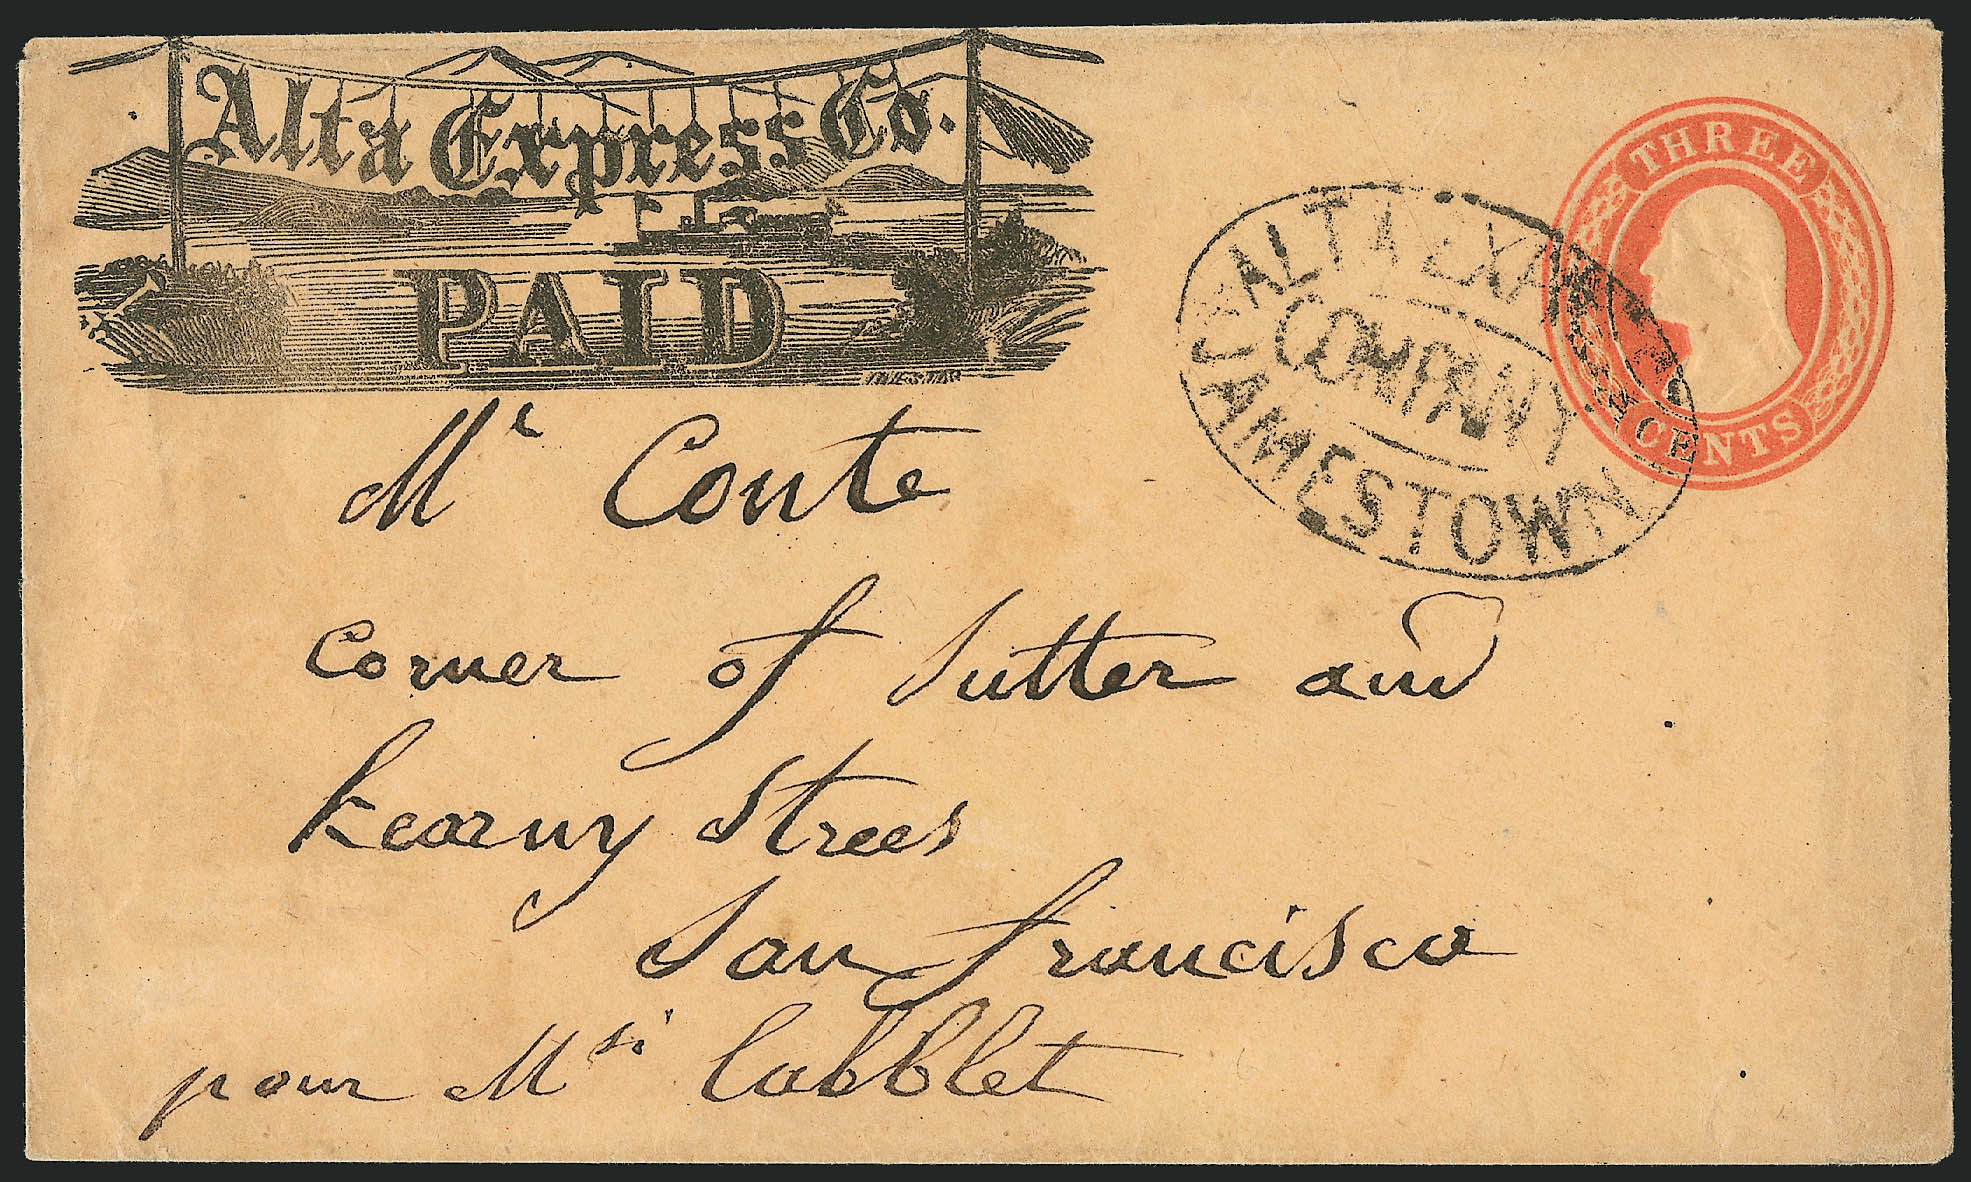 Alta Express Co.
PAID
THREE
CENTS
ALTA EX
COMPANY
JAMESTOWN
Mr Conte
corner of Sutter and
Kearny Strees
San francisco
pour Msr